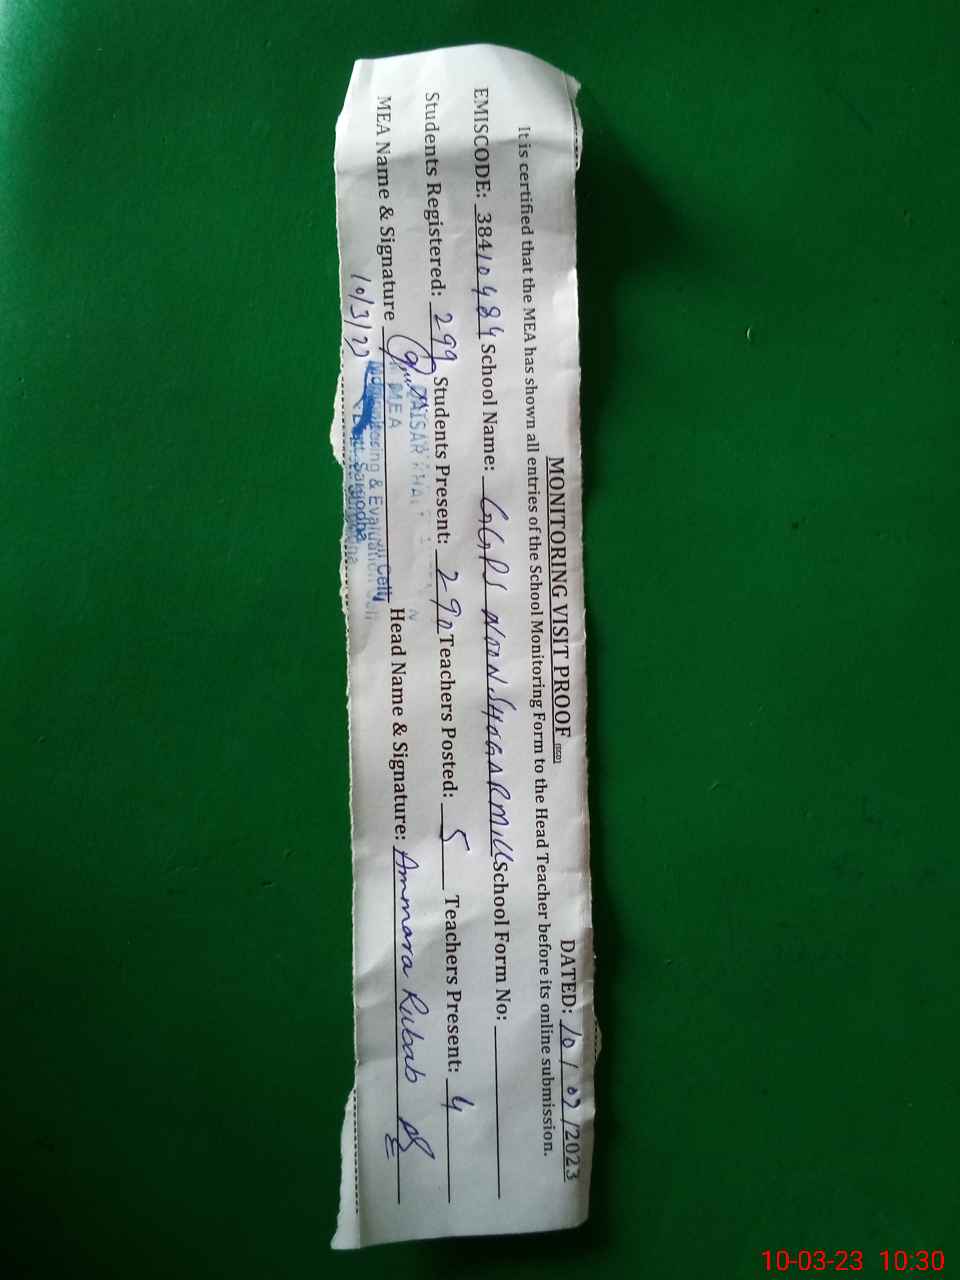 MONITORING VISIT PROOF (SED) DATED: 10 / 03 /2023
It is certified that the MEA has shown all entries of the School Monitoring Form to the Head Teacher before its online submission.
EMISCODE: 38410484 School Name: GGPS NOON SHOGAR Mill School Form No:
Students Registered: 299 Students Present: 290 Teachers Posted: 5 Teachers Present: 4
MEA Name & Signature Head Name & Signature: Ammara Rubab
QAISAR
MEA
Monitoring & Evaluation Cell
Sargodha
10/3/23
10-03-23 10:30